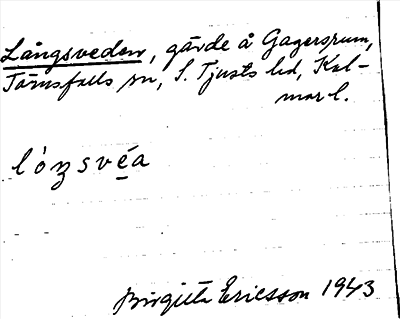 Långsveden, gärde å Gagersrum,
Törnsfalls sn, S. Tjusts hd, Kal-
mar l.
lóŋsvéa
Birgitta Ericsson 1943